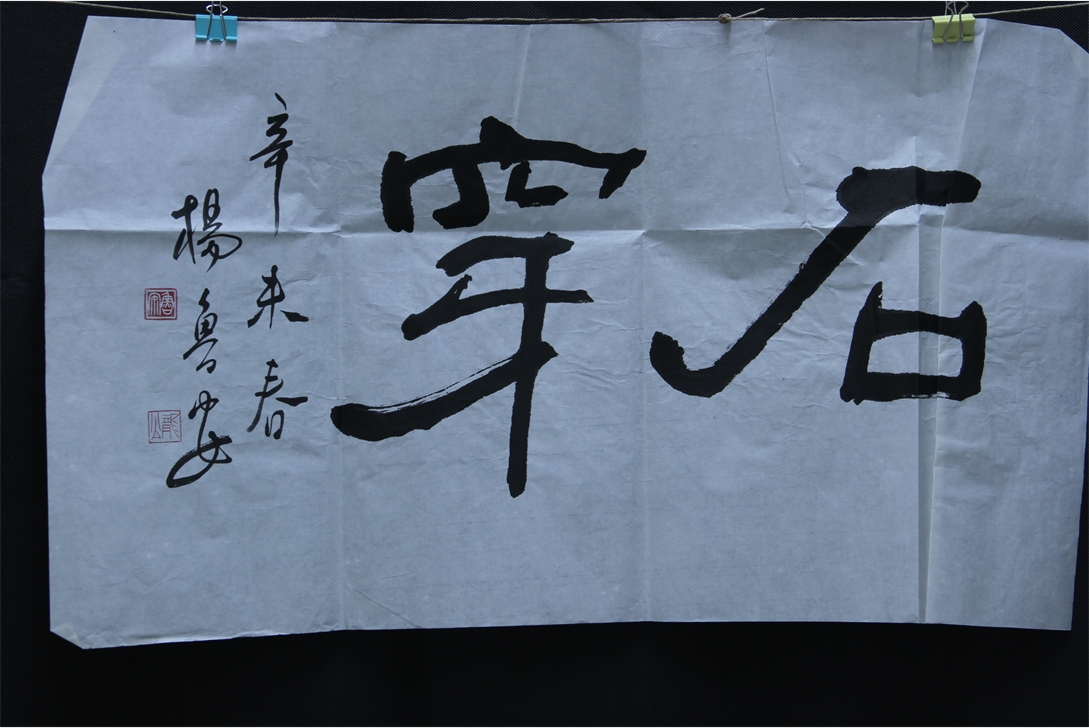 石穿
辛未春
楊魯安